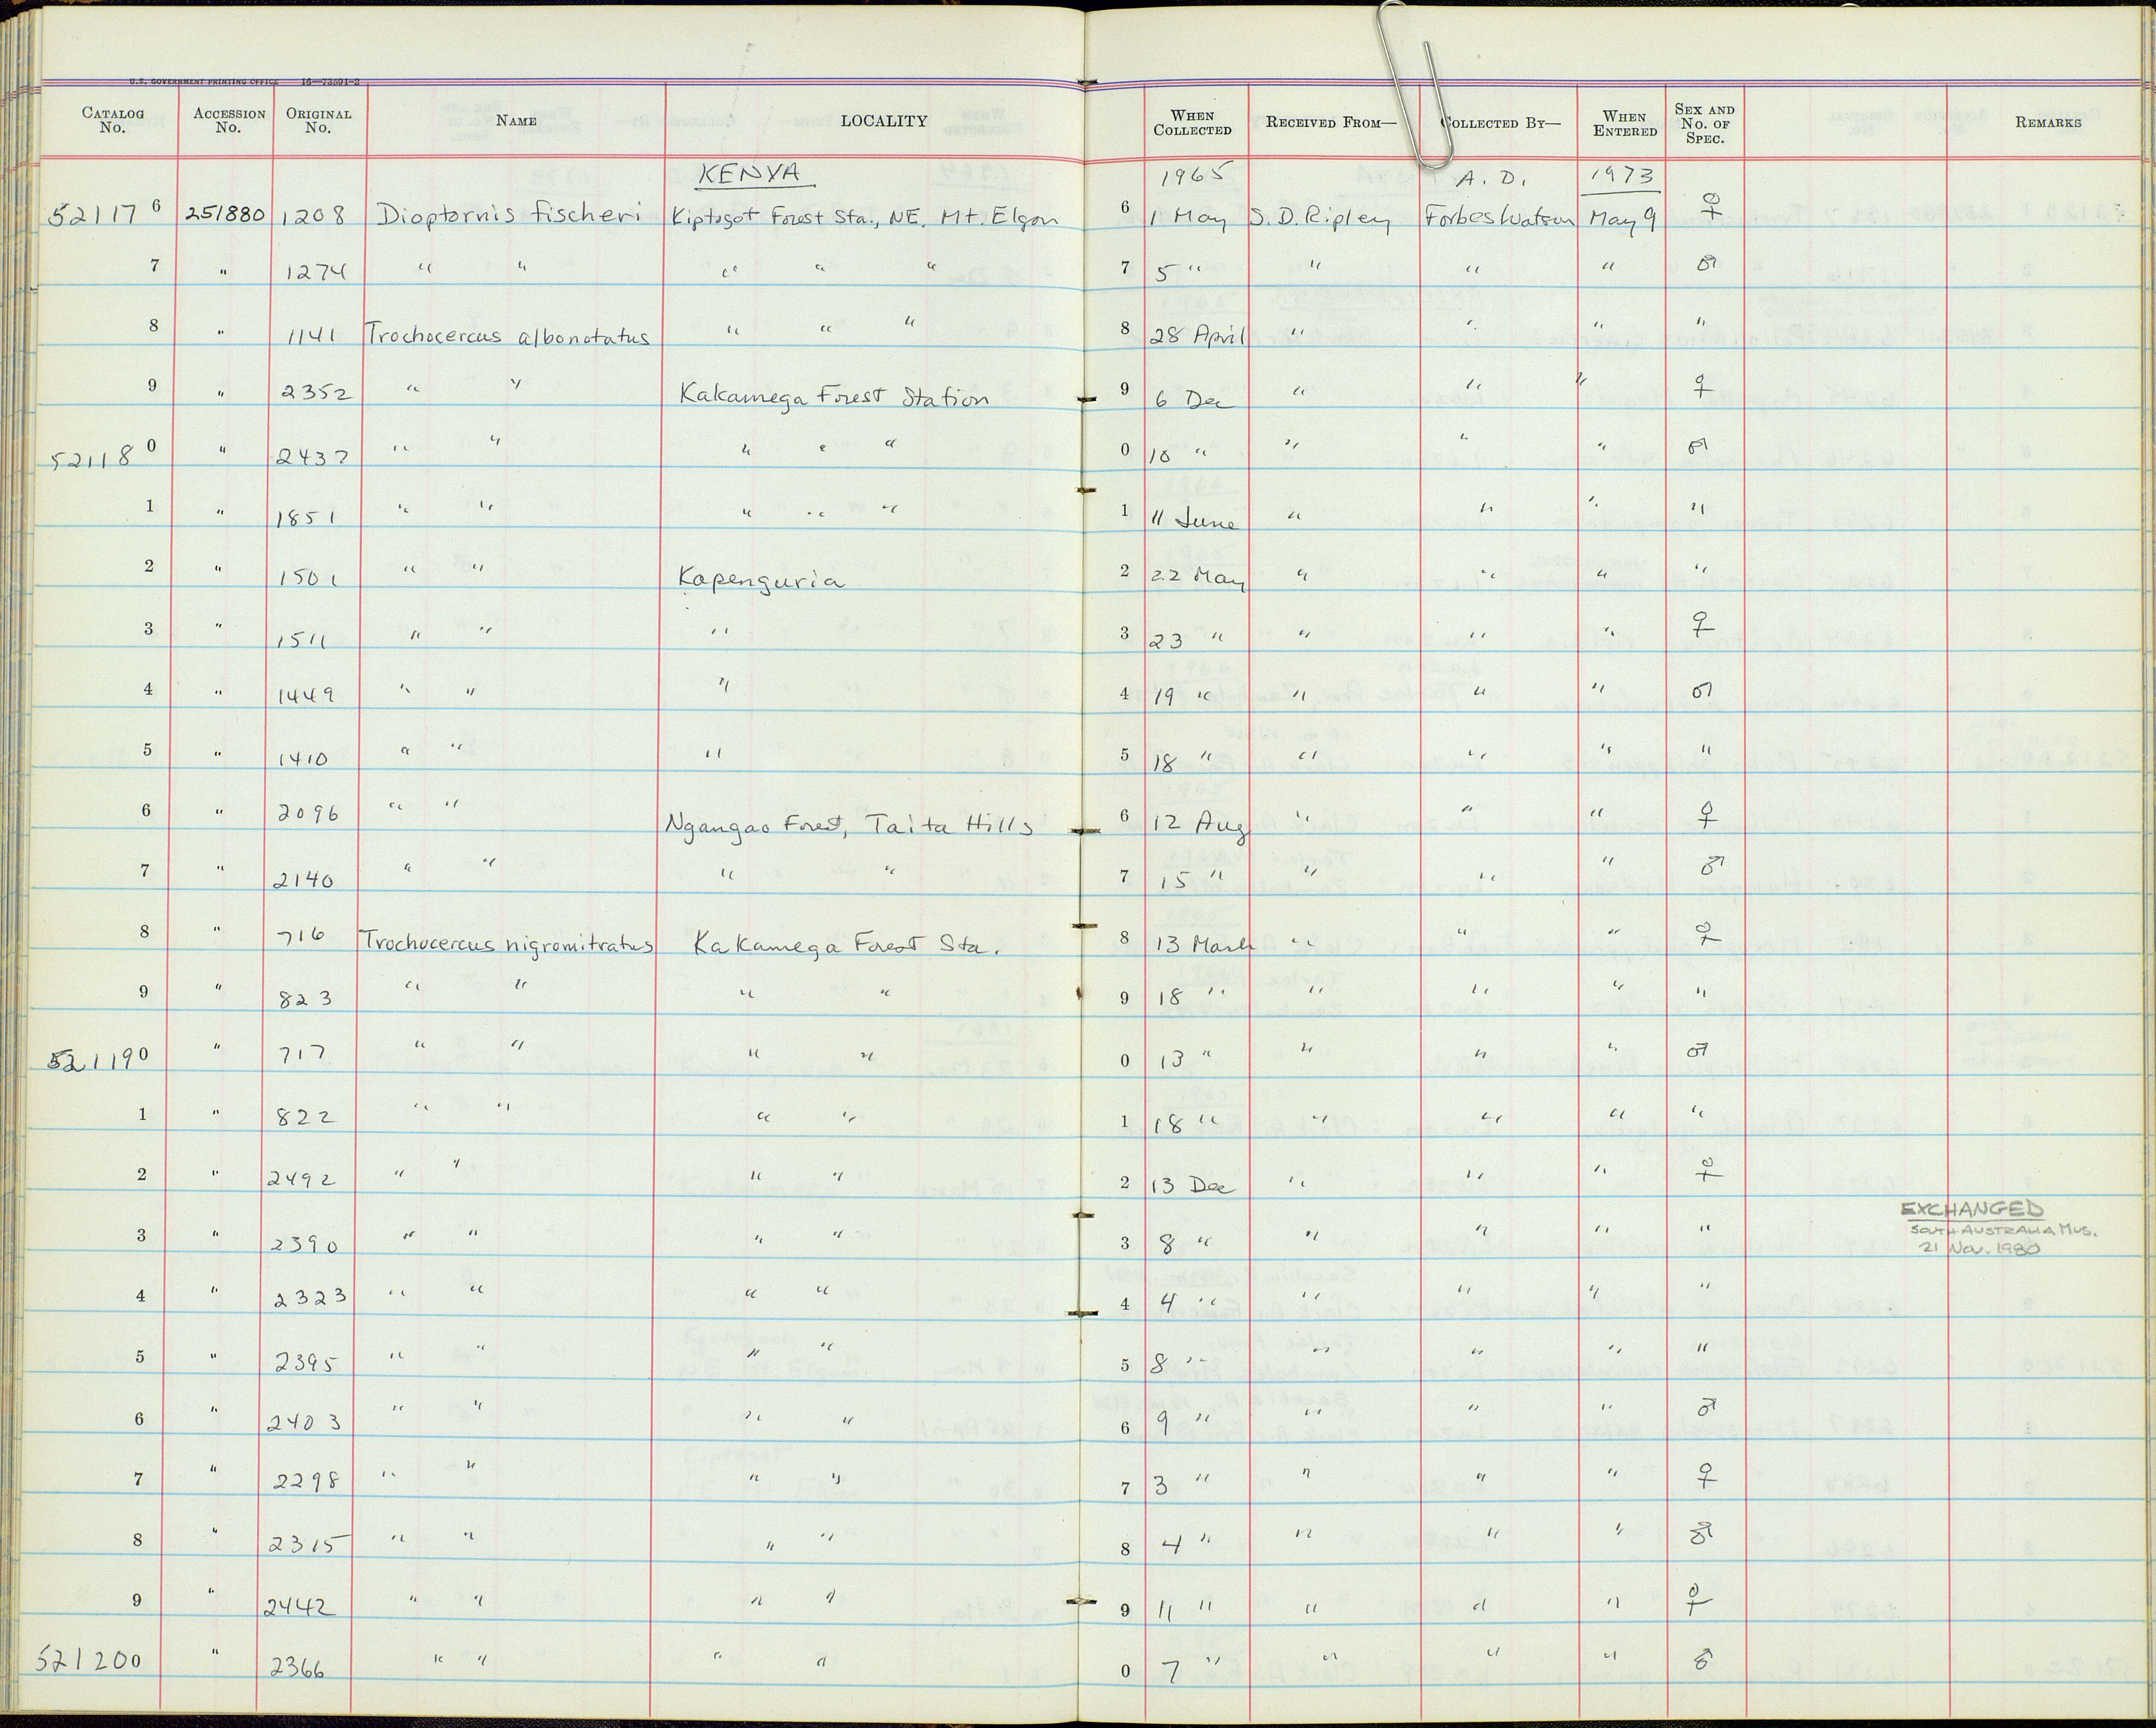 U.S. GOVERNMENT PRINTING OFFICE 16—73501-2
CATALOG No. ACCESSION No. ORIGINAL No. NAME LOCALITY WHEN COLLECTED RECEIVED FROM— COLLECTED BY— WHEN ENTERED SEX AND No. OF SPEC. REMARKS
KENYA 1965 A. D. 1973
521176 251880 1208 Dioptornis fischeri Kiptogot Forest Sta., NE. Mt. Elgon 6 1 May S.D. Ripley Forbes Watson May 9 ♀
7 " 1274 " " " " " 7 5 " " " " ♂
8 " 1141 Trochocercus albonotatus " " " 8 28 April " " " "
9 " 2352 " " Kakamega Forest Station 9 6 Dec " " " ♀
521180 " 2437 " " " " " 0 10 " " " " ♂
1 " 1851 " " " " " 1 11 June " " " "
2 " 1501 " " Kapenguria 2 22 May " " " "
3 " 1511 " " " 3 23 " " " " ♀
4 " 1449 " " " 4 19 " " " " ♂
5 " 1410 " " " 5 18 " " " " "
6 " 2096 " " Ngangao Forest, Taita Hills 6 12 Aug " " " ♀
7 " 2140 " " " " 7 15 " " " " ♂
8 " 716 Trochocercus nigromitratus Kakamega Forest Sta. 8 13 March " " " ♀
9 " 823 " " " " 9 18 " " " " "
521190 " 717 " " " " 0 13 " " " " ♂
1 " 822 " " " " 1 18 " " " " "
2 " 2492 " " " " 2 13 Dec " " " ♀
3 " 2390 " " " " 3 8 " " " " " EXCHANGED
SOUTH AUSTRALIA MUS.
21 Nov. 1980
4 " 2323 " " " " 4 4 " " " " "
5 " 2395 " " " " 5 8 " " " " "
6 " 2403 " " " " 6 9 " " " " ♂
7 " 2298 " " " " 7 3 " " " " ♀
8 " 2315 " " " " 8 4 " " " " ♂
9 " 2442 " " " " 9 11 " " " " ♀
521200 " 2366 " " " " 0 7 " " " " ♂